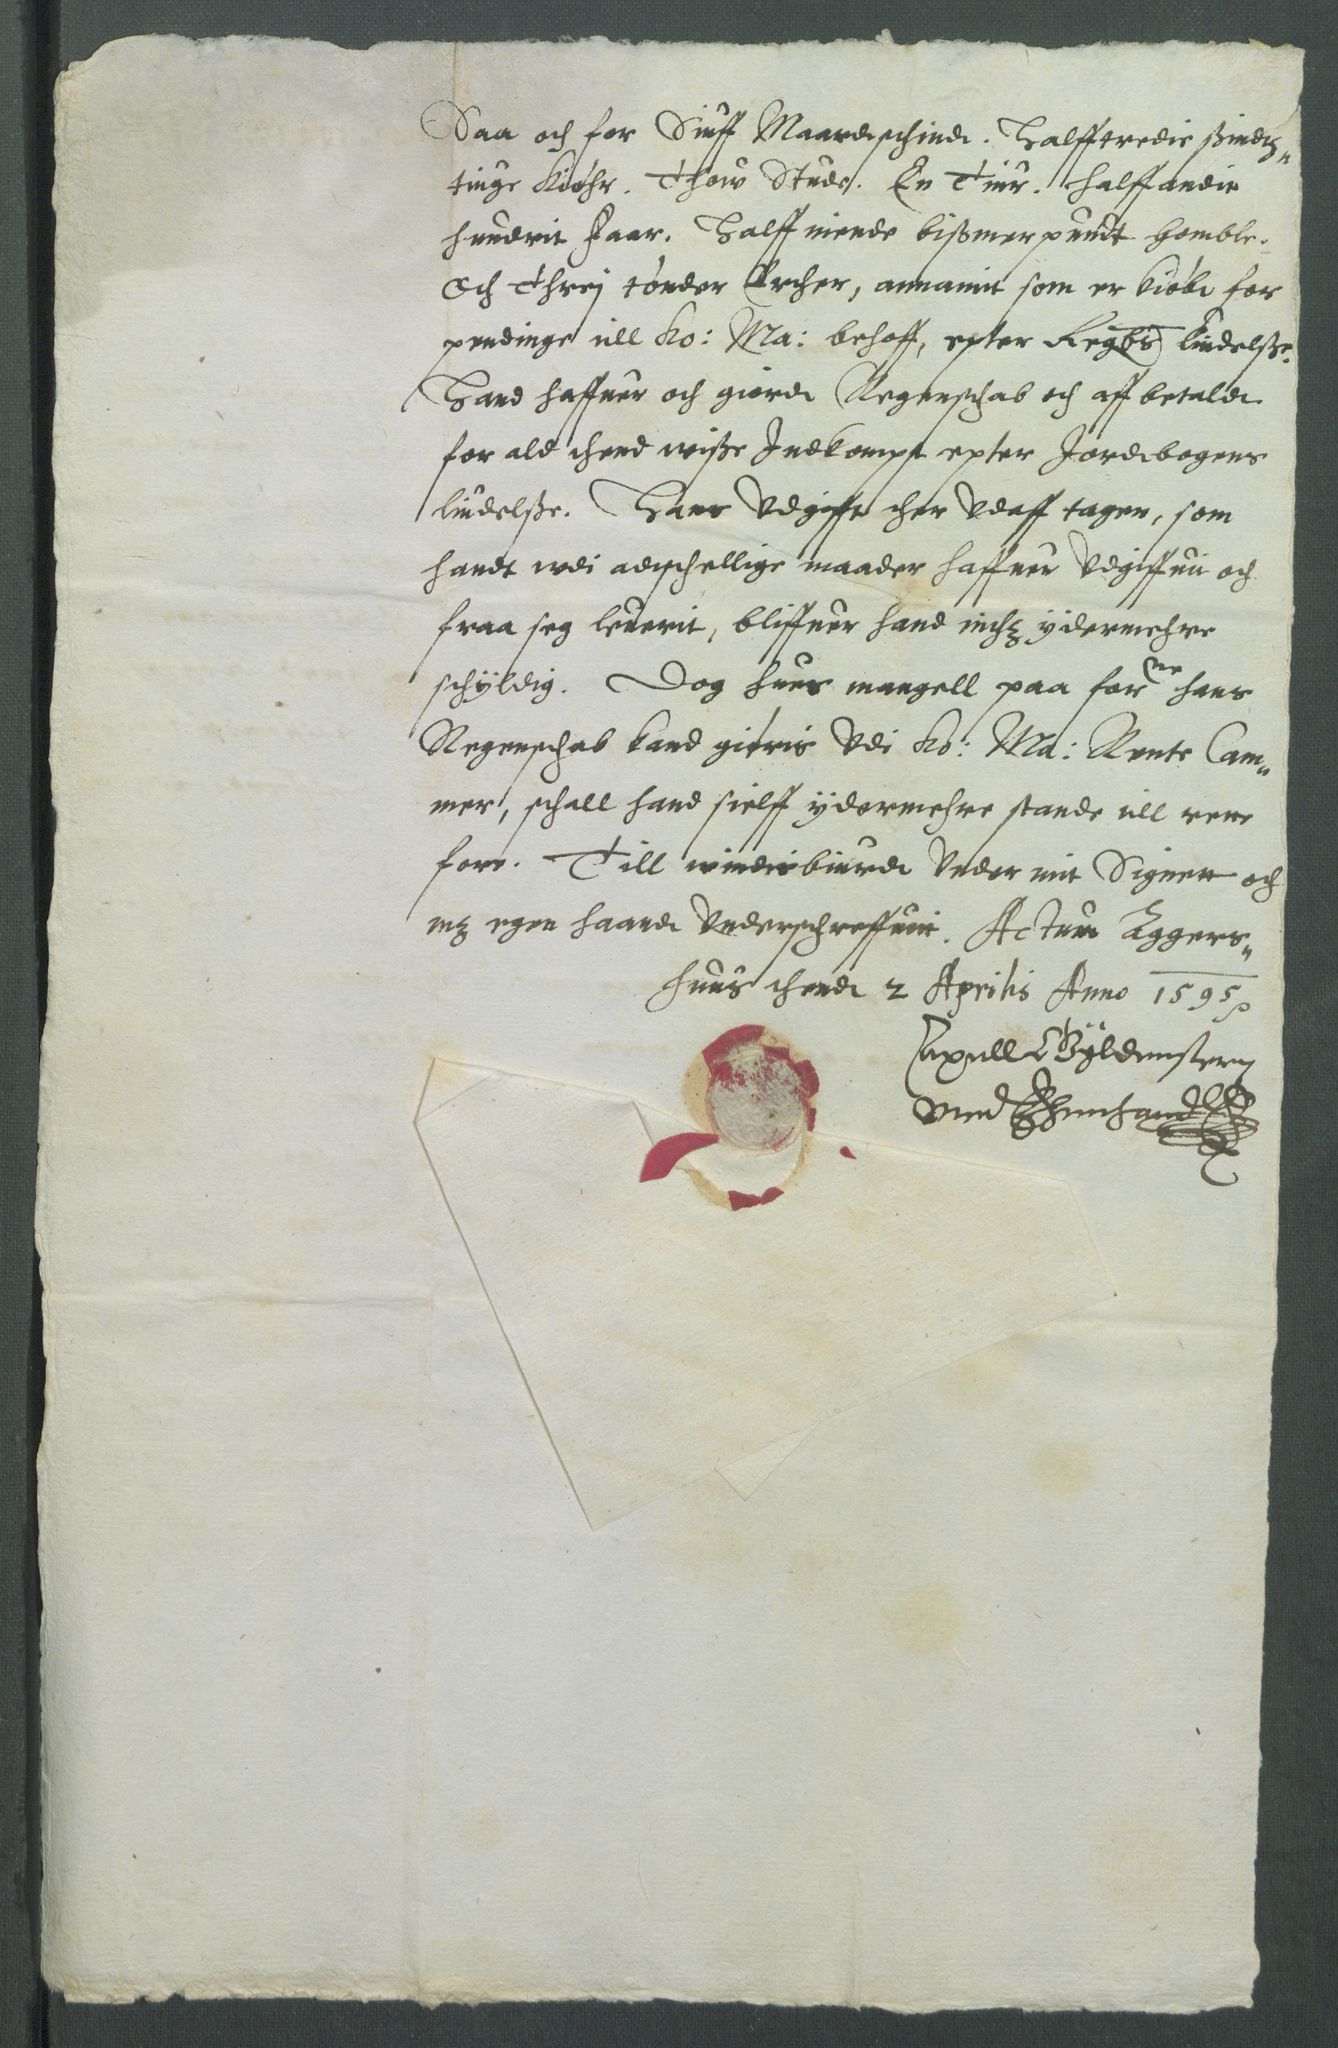 Saa och for Siuff Maardschind. Halfftredie sindz-
tiuge Kiøhr. Thow Stude. En Tiur. Halffandit
hundrit Faar. Halff niende bißmerpundt homble.
Och Threj tønder Ercher, annamit som er kiøbt for
pendinge till Ko: Ma: behoff, epter Regbs liudelße.
Hand haffuer och giordt Regenschab och aff betaldt
for ald thend wiße Indkompst epter Jordebogens
liudelße. Hans Udgifft ther Udaff tagen, som
handt wdi adschellige maader haffuer Udgiffuit och
fraa seg leuerit, bliffuer hand inthz ydermehre
schyldig. Dog huus mangell paa for ne hans
Regenschab kand giøris Udi Ko: Ma: Rente Cam-
mer, schall hand sielff ydermehre stande till rette
fore. Till windisbiurd Under mit Signett och
mz egen haandt Underschreffuit. Actum Aggers-
huus thend 2 Aprilis Anno 1595
Axell Gyldenstern
mind Eghenhand